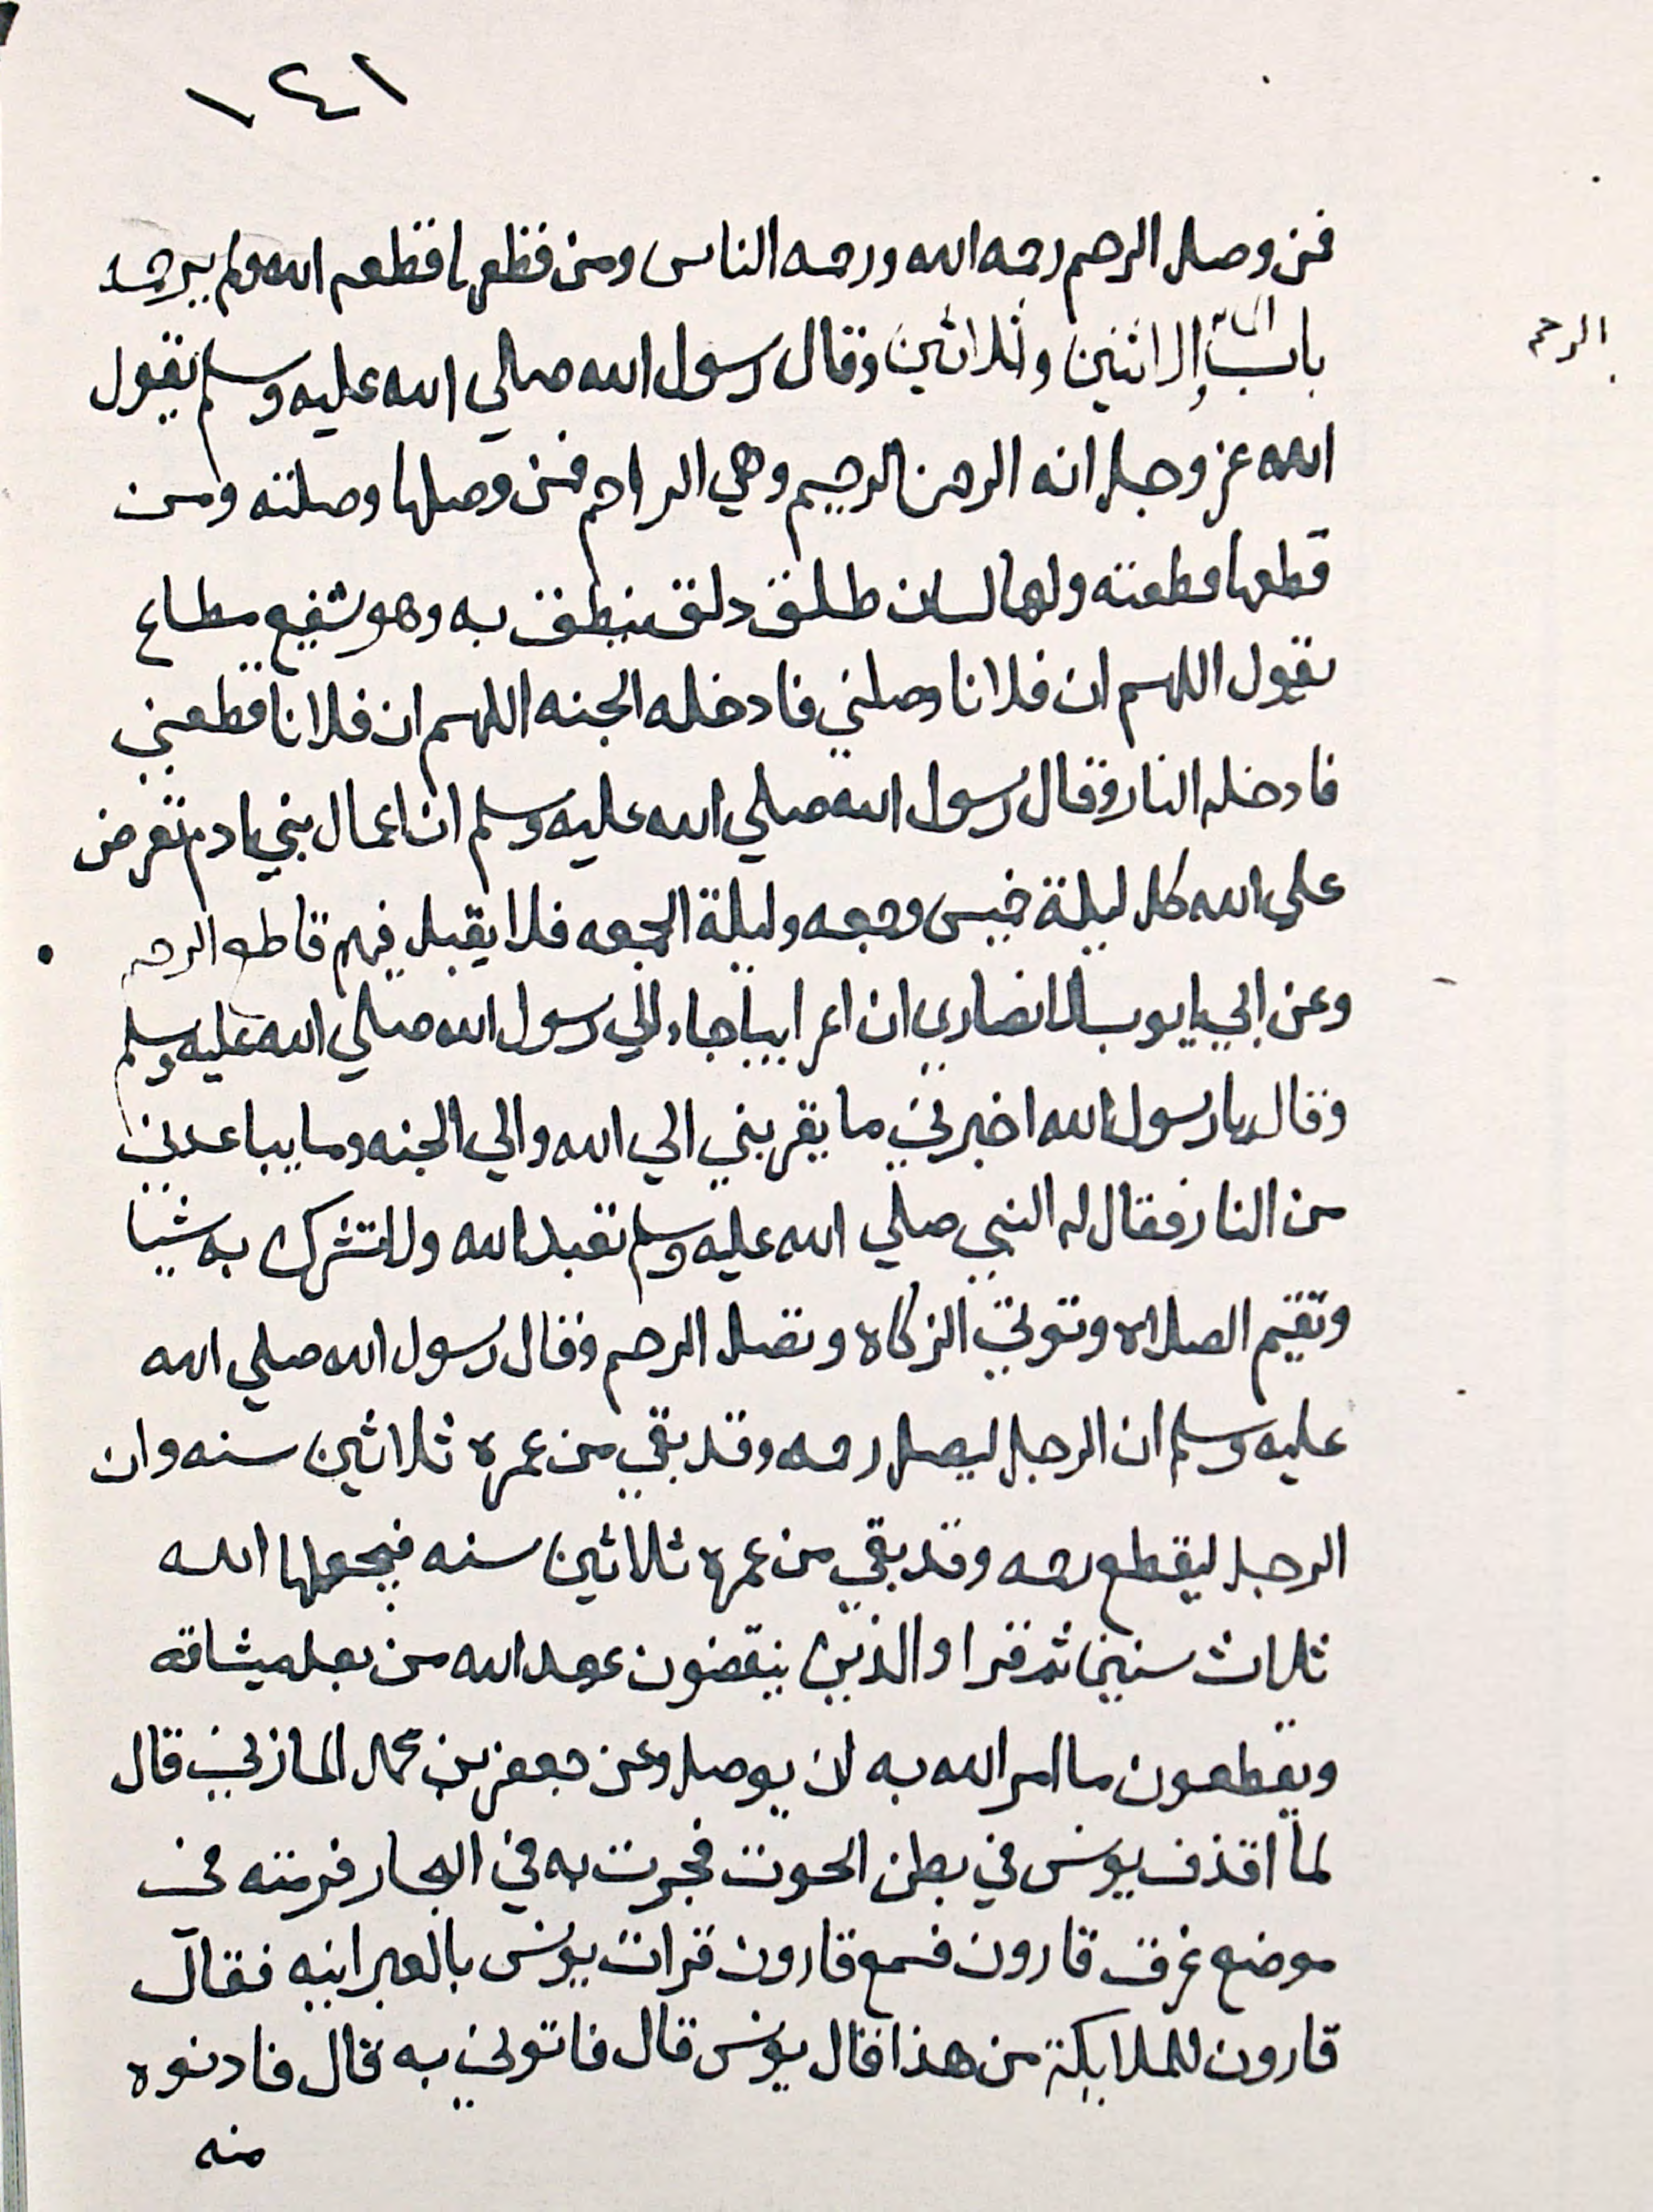 ١٤١
فمن وصل الرحم رحمه الله ورحمه الناس ومن قطعها قطعه الله ولم يرحمه
الرحم
باب الاثنين وثلاثين وقال رسول الله صلي الله عليه وسلم يقول
الله عز وجل انه الرحمن الرحيم وهي الراحم فمن وصلها وصلته ومن
قطعها قطعته ولها لسان طلق دلق ينطق به وهو شفيع مطاع
يقول اللهم ان فلانا وصلني فادخله الجنه اللهم ان فلانا قطعني
فادخله النار وقال رسول الله صلي الله عليه وسلم ان اعمال بني ادم تعرض
علي الله كل ليلة خميس وجمعه وليلة الجمعه فلا يقبل فيهم قاطع الرحم
وعن ابي ايوب الانصاري ان اعرابيا جاء الي رسول الله صلي الله عليه وسلم
وقال يا رسول الله اخبرني ما يقربني الي الله والي الجنه وما يباعدني
من النار فقال له النبي صلي الله عليه وسلم تعبد الله ولا تشرك به شيا
وتقيم الصلاه وتوتي الزكاه وتصل الرحم وقال رسول الله صلي الله
عليه وسلم ان الرجل ليصل رحمه وقد بقي من عمره ثلاثين سنه وان
الرجل ليقطع رحمه وقد بقي من عمره ثلاثين سنه فيجعلها الله
ثلاث سنين ثم قرا والذين ينقضون عهد الله من بعد ميثاقه
ويقطعون ما امر الله به ان يوصل وعن جعفر بن محمد المازني قال
لما اقذف يونس في بطن الحوت فجرت به في البحار فرمته في
موضع غرق قارون فسمع قارون قرات يونس بالعبرانيه فقال
قارون للملايكة من هذا قال يونس قال فاتوني به قال فادنوه
منه